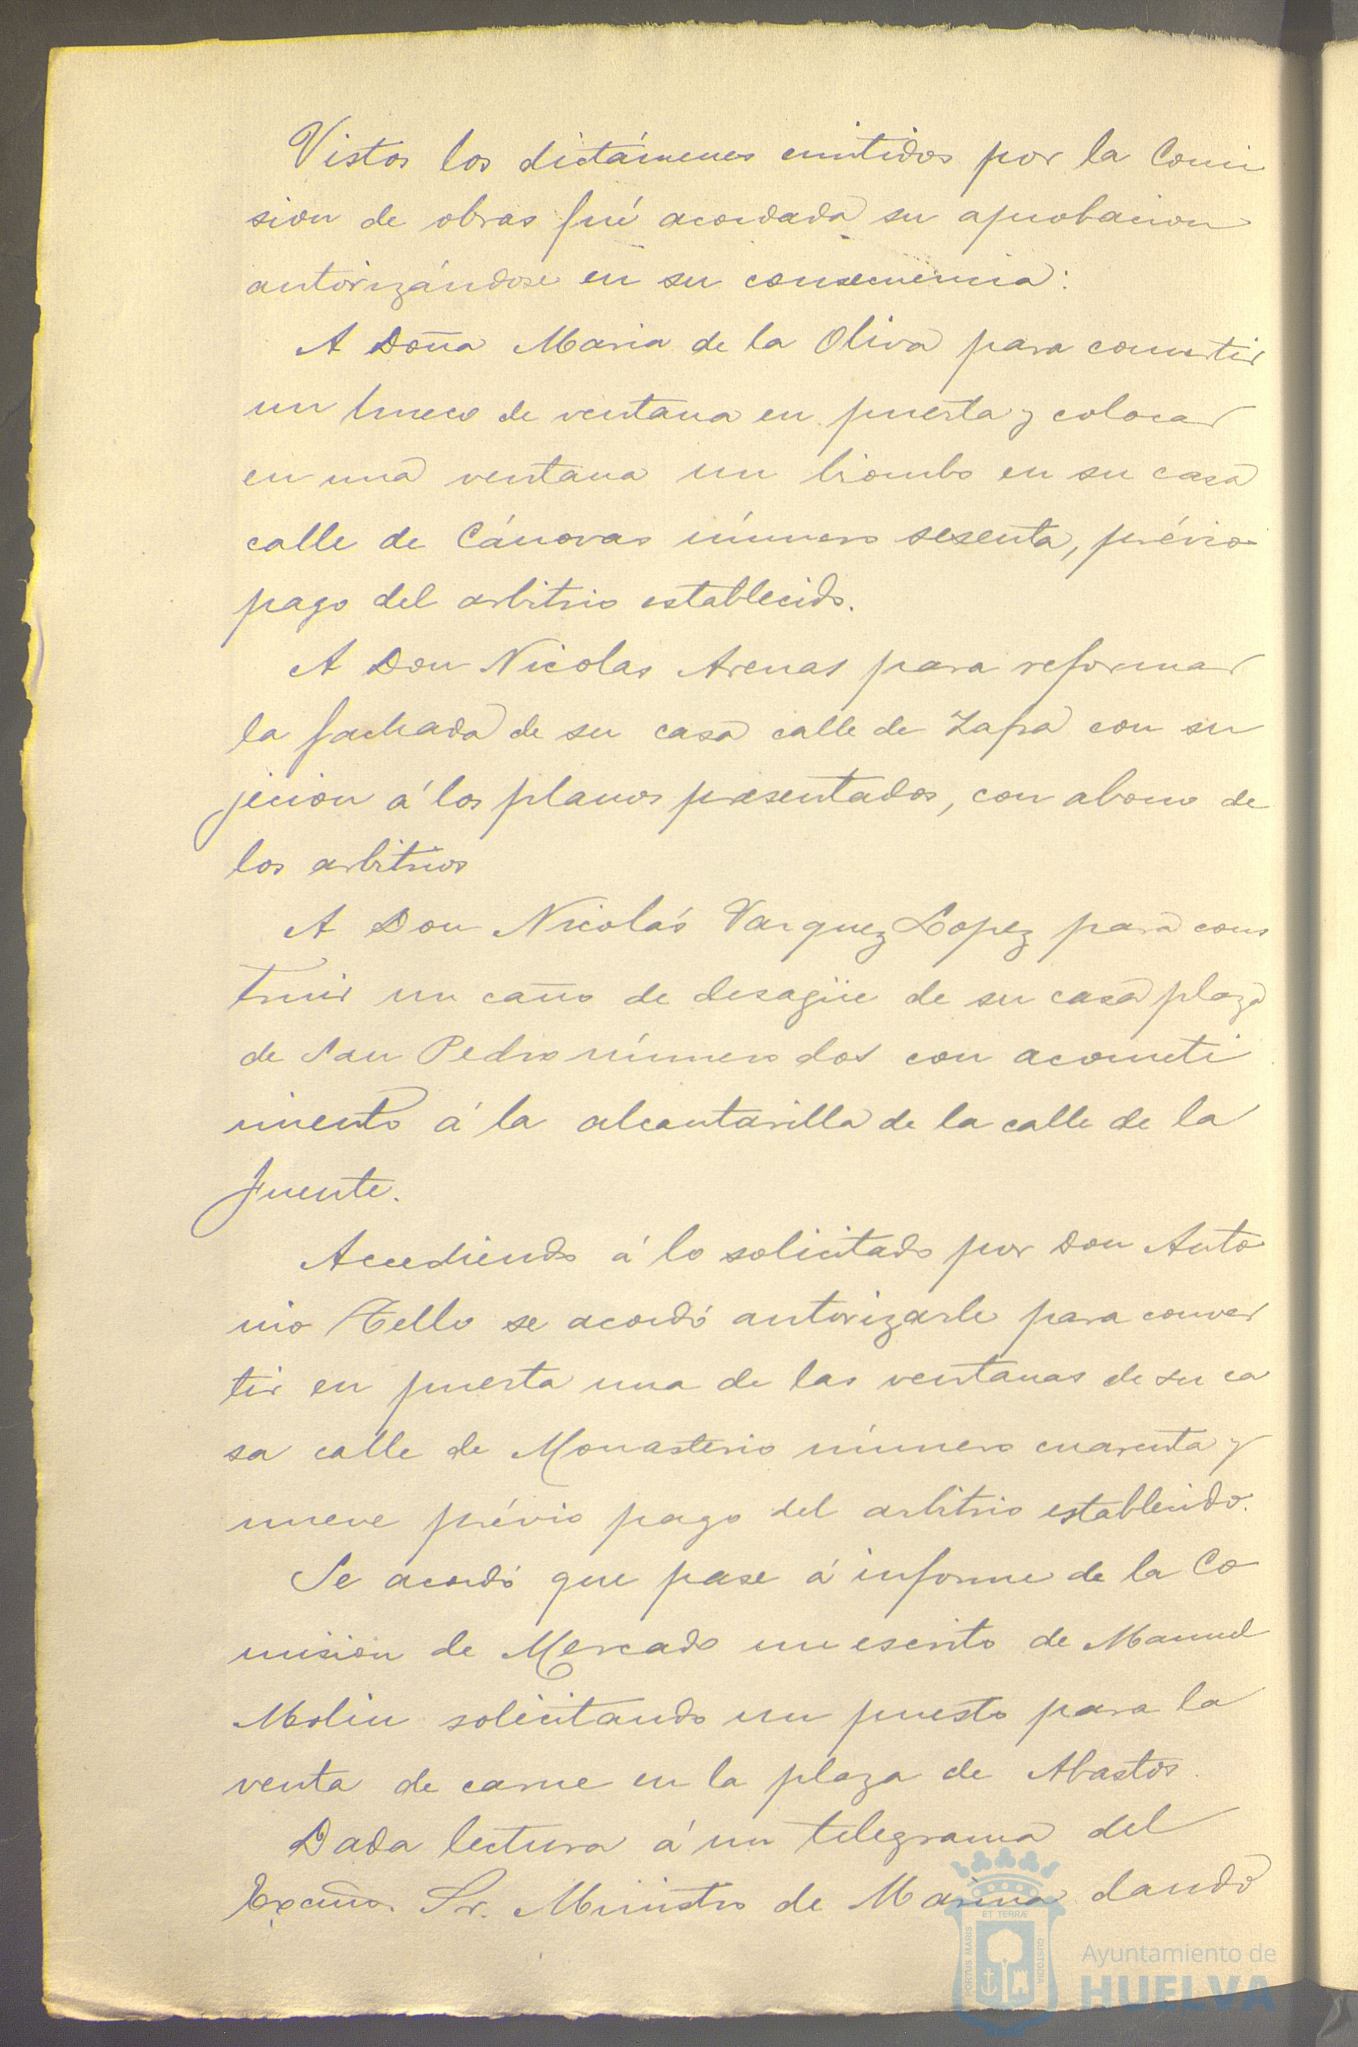 Vistos los dictámenes emitidos por la Comi
sion de obras fué acordada su aprobacion
autorizándose en su consecuencia:
A Doña Maria de la Oliva para convertir
un hueco de ventana en puerta y colocar
en una ventana un biombo en su casa
calle de Cánovas número sesenta, prévio
pago del arbitrio establecido.
A Don Nicolas Arenas para reformar
la fachada de su casa calle de Zafra con su
jecion á los planos presentados, con abono de
los arbitrios
A Don Nicolás Vazquez Lopez para cons
truir un caño de desagüe de su casa plaza
de San Pedro número dos con acometi
miento á la alcantarilla de la calle de la
Fuente.
Accediendo á lo solicitado por Don Anto
nio Tello se acordó autorizarle para conver
tir en puerta una de las ventanas de su ca
sa calle de Monasterio número cuarenta y
nueve prévio pago del arbitrio establecido.
Se acordó que pase á informe de la Co
mision de Mercado un escrito de Manuel
Molin solicitando un puesto para la
venta de carne en la plaza de Abastos.
Dada lectura á un telegrama del
Excmo. Sr. Ministro de Marina dando
PORTUS MARIS ET TERRÆ CUSTODIA
Ayuntamiento de
HUELVA